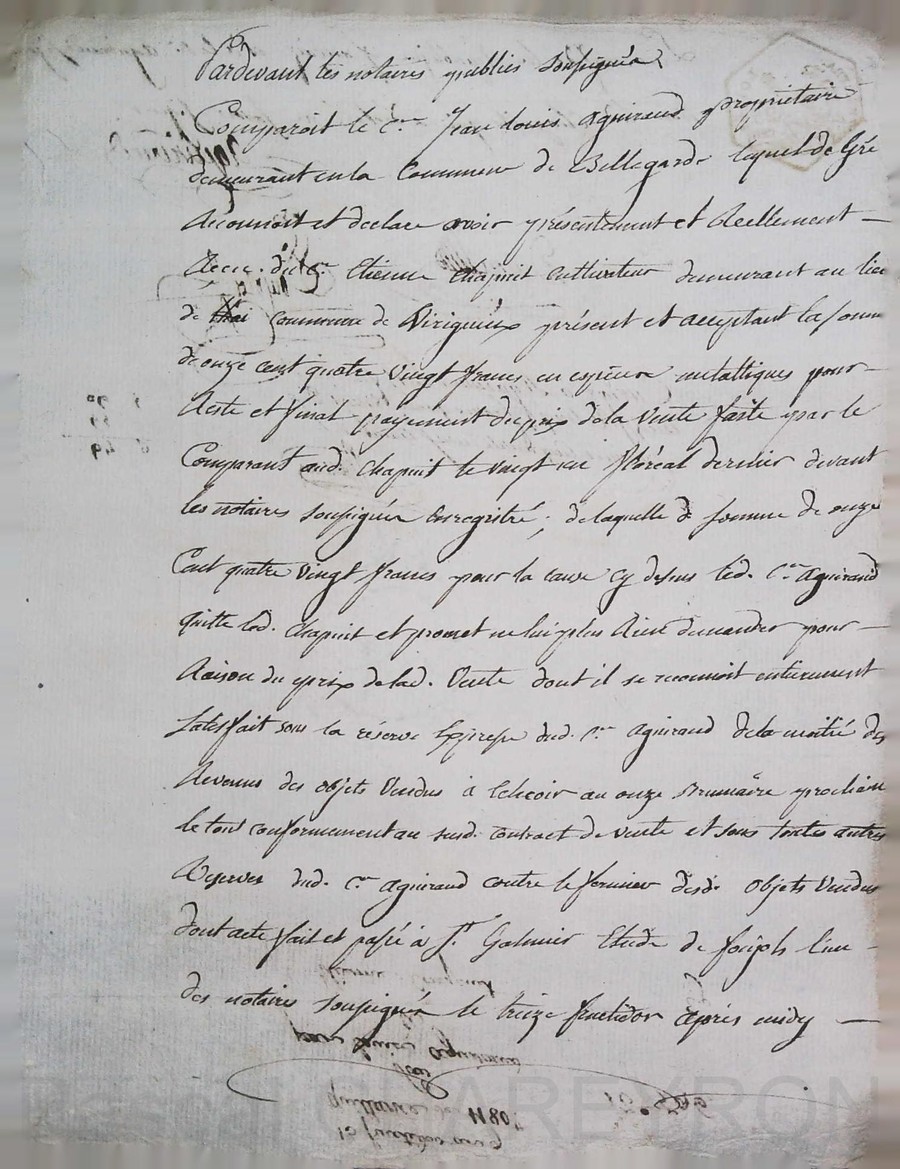 Pardevant les notaires publics soussignés
Comparoit le c.en Jean Louis aguiraud propriétaire
demeurant en la Commune de Bellegarde lequel de Gré
Reconnoit et declare avoir présentement et Réellement —
Recu du c.en Etienne Chapuit cultivateur demeurant au lieu
de commune de Viriguieux présent et acceptant la somme
de onze cent quatre vingt francs en espèces metalliques pour —
Reste et final payement du prix de la Vente faite par le
Comparant aud. Chapuit le vingt un floréal dernier devant
les notaires soussignés Enregistré ; de laquelle d somme de onze
Cent quatre vingt francs pour la cause cy dessus led. C.en aguiraud
quitte led. Chapuit et promet ne lui plus Rien demander pour —
Raison du prix de lad. Vente dont il se reconnoit entierement
satisfait sous la réserve Expresse dud. C.en aguiraud de la moitié des
Revenus des objets Vendus à Echeoir au onze Brumaire prochain
le tout conformement au susd. contract de vente et sous toutes autres
Reserves dud. C.en aguiraud contre le fermier desd. objets Vendus
dont acte fait et passé à S.t Galmier Etude de Joseph l'un —
des notaires soussignés le treize fructidor après midy —
quittance de 1180
13 fructidor an 9
AREYRON